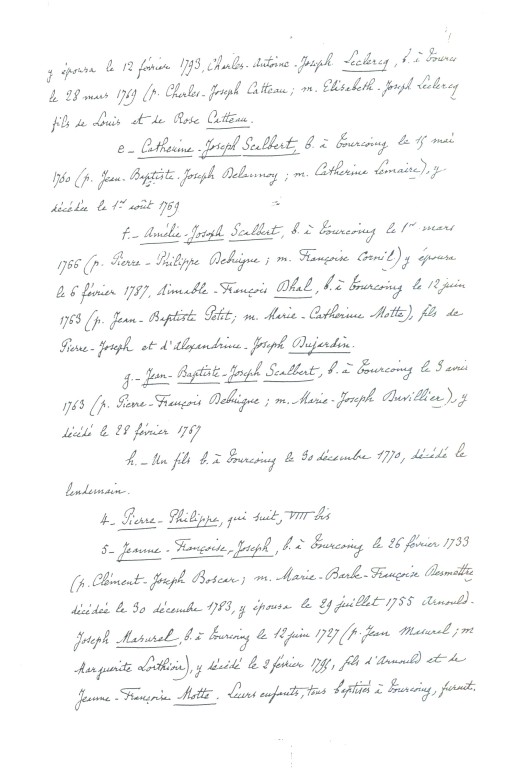 y épousa le 12 février 1793, Charles-Antoine-Joseph Leclercq, b. à Tourcg
le 28 mars 1769 (p. Charles-Joseph Catteau; m. Elisabeth-Joseph Leclercq
fils de Louis et de Rose Catteau.
e - Catherine-Joseph Scalbert, b. à Tourcoing le 15 mai
1760 (p. Jean-Baptiste-Joseph Delannoy; m. Catherine Lemaire), y
décédée le 1er août 1769
f. - Amélie-Joseph Scalbert, b. à Tourcoing le 1er mars
1766 (p. Pierre-Philippe Debuigne; m. Françoise Cornil) y épousa
le 6 février 1787, Aimable-François Dhal, b. à Tourcoing le 12 juin
1763 (p. Jean-Baptiste Petit; m. Marie-Catherine Motte), fils de
Pierre-Joseph et d'Alexandrine-Joseph Dujardin.
g. - Jean-Baptiste-Joseph Scalbert, b. à Tourcoing le 3 avril
1763 (p. Pierre-François Debuigne; m. Marie-Joseph Duvillier), y
décédé le 28 février 1767
h. - Un fils b. à Tourcoing le 30 décembre 1770, décédé le
lendemain.
4 - Pierre-Philippe, qui suit, VIII bis
5 - Jeanne-Françoise-Joseph, b. à Tourcoing le 26 février 1733
(p. Clément-Joseph Boscar; m. Marie-Barbe-Françoise Desmettre
décédée le 30 décembre 1783, y épousa le 29 juillet 1755 Arnould-
Joseph Masurel, b. à Tourcoing le 12 juin 1727 (p. Jean Masurel; m
Marguerite Lorthioir), y décédé le 2 février 1795, fils d'Arnould et de
Jeanne-Françoise Motte. Leurs enfants, tous baptisés à Tourcoing, furent.